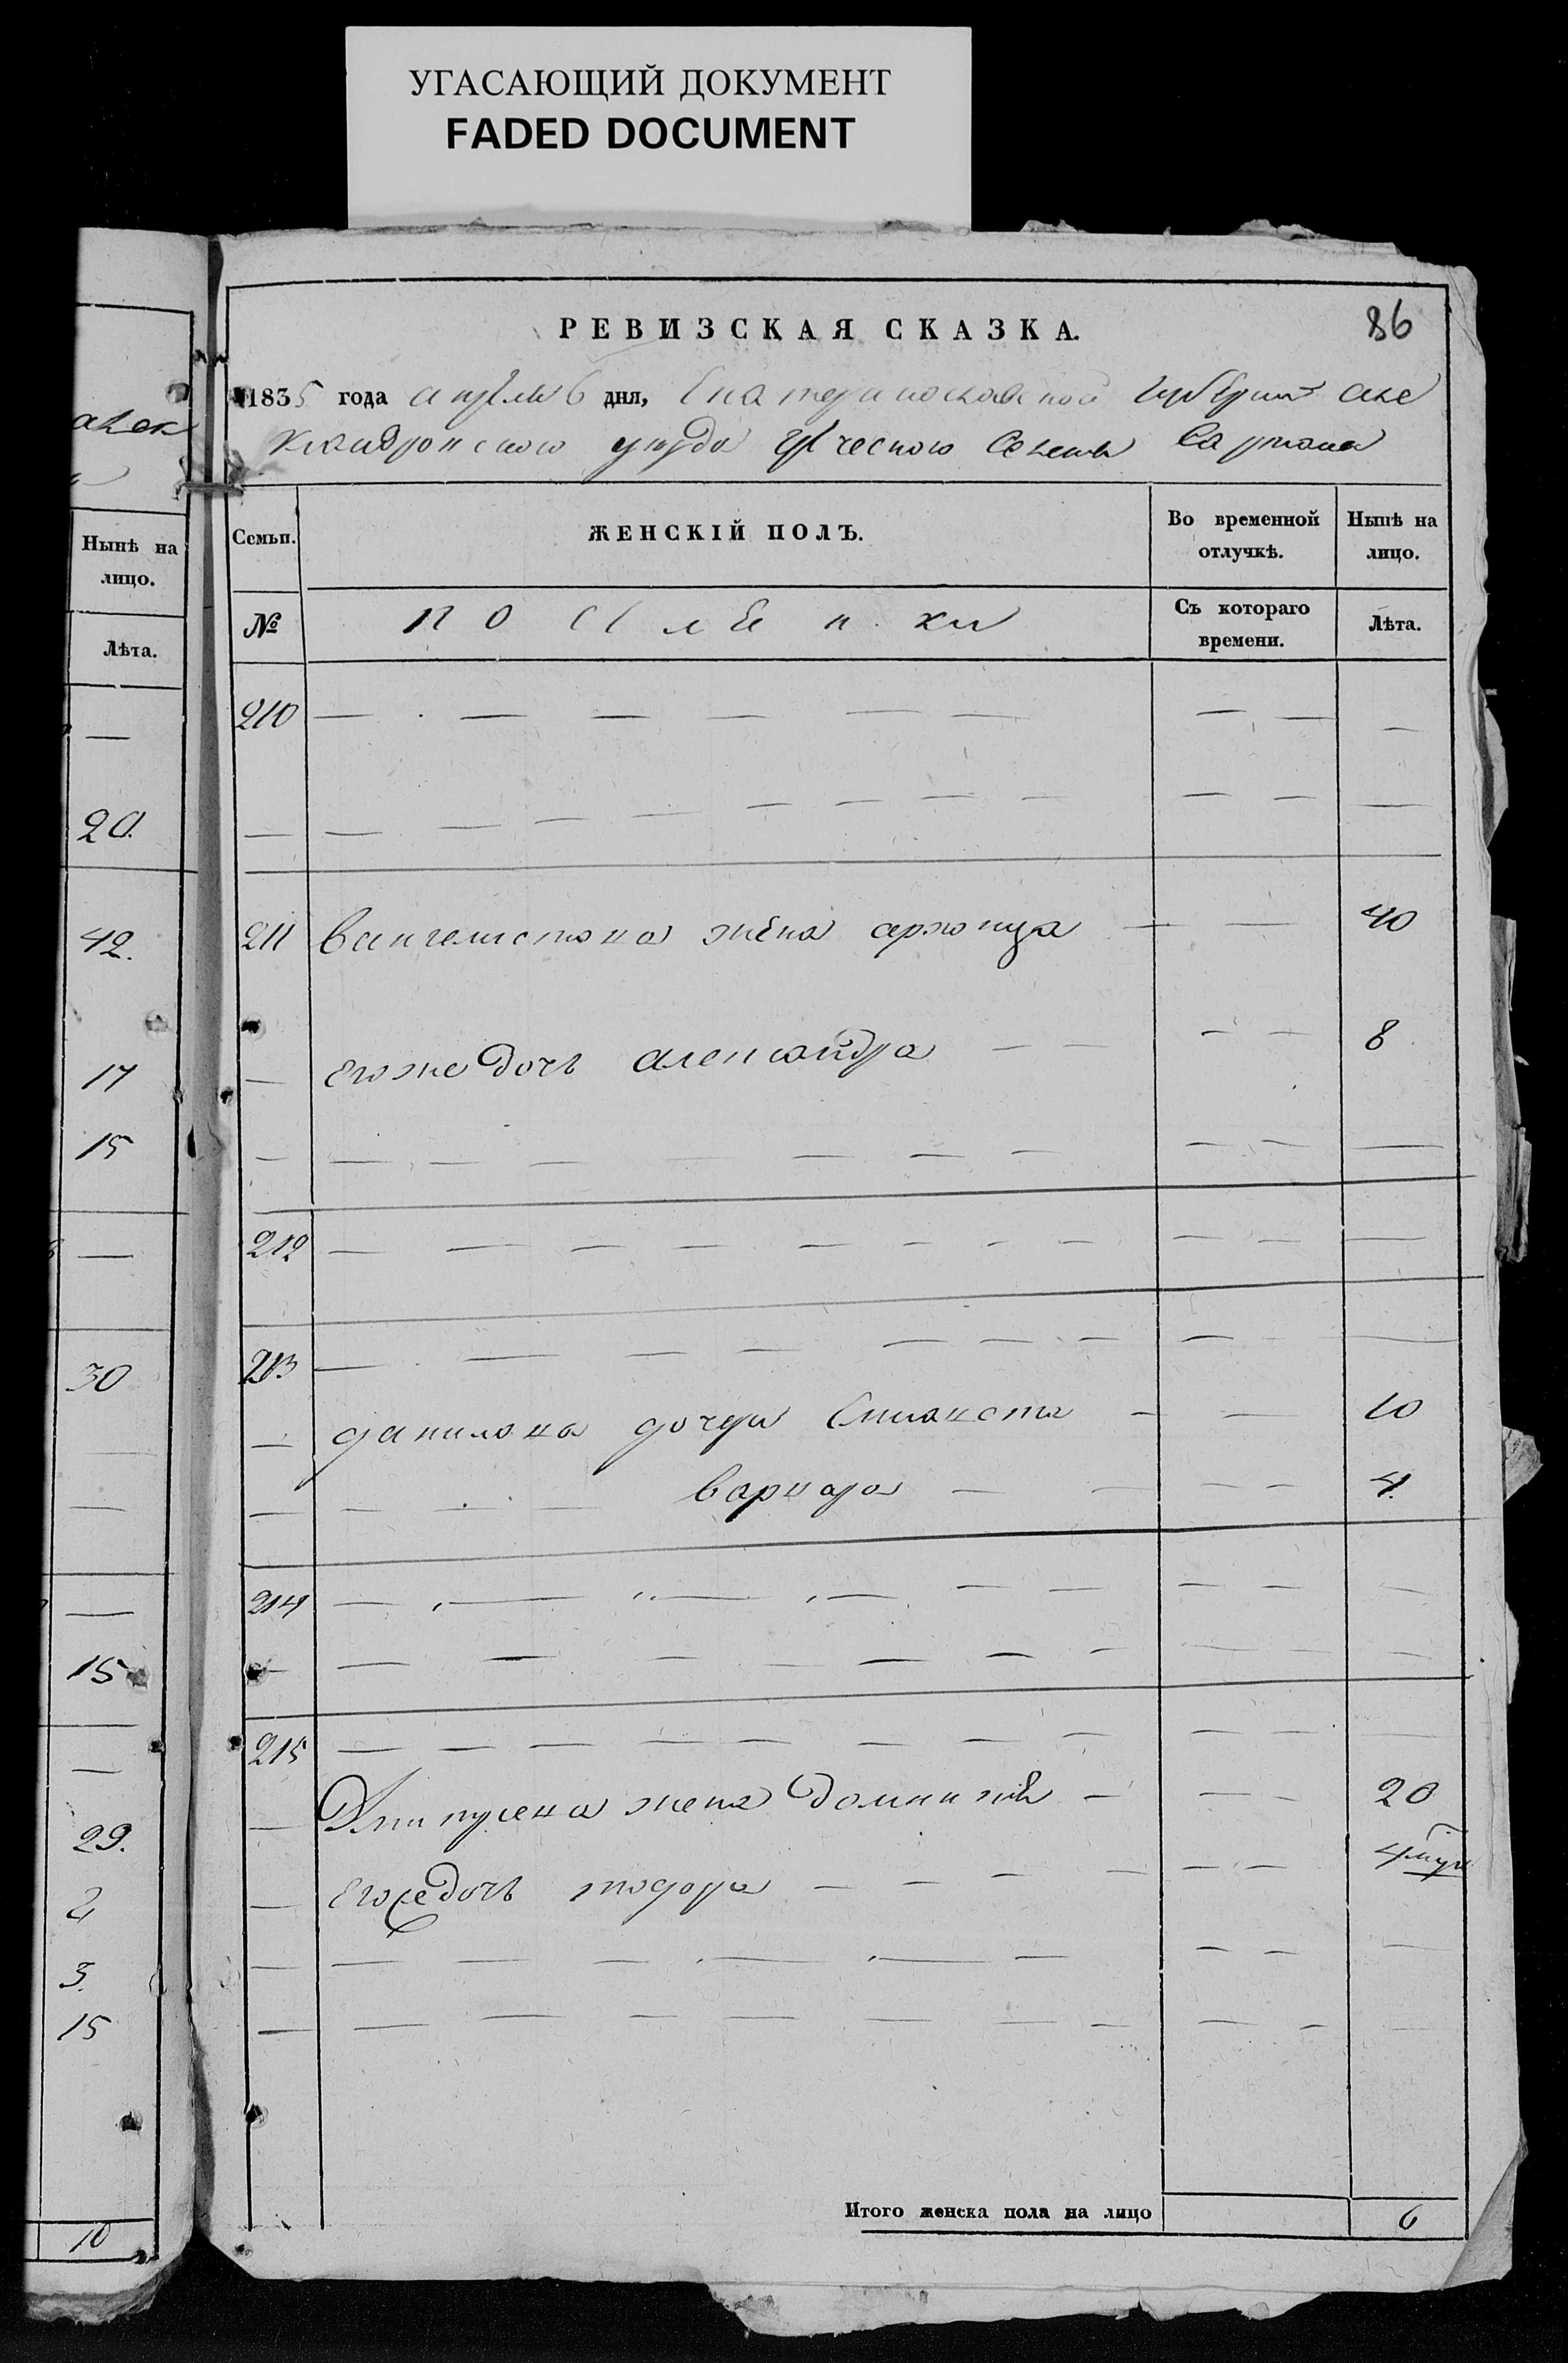 УГАСАЮЩИЙ ДОКУМЕНТ
FADED DOCUMENT
РЕВИЗСКАЯ СКАЗКА.
86
1835 года апреля 6 дня, Екатеринославской Губернии Але
ксандронского уезда греческого Селения Сартана
Семьи.
ЖЕНСКІЙ ПОЛЪ.
Во временной отлучкѣ.
Нынѣ на лицо.
№
Съ котораго времени.
Лѣта.
210 — — — — — — — — —
— — — — — — — — — — —
211 Вангелистова жена архонца — — 40
— его же дочь александра — — — — 8
— — — — — — — — — — —
212 — — — — — — — — — — —
213 — — — — — — — — —
— данилова дочери — — 10
— — — варвара — — — — 4
214 — — — — — — — — —
— — — — — — — — — — —
215 — — — — — — — — — — —
— жена — — — 20
— Его же дочь тодора — — — — — — 4
— — — — — — — — —
— — — — — — — — — — —
Итого женска пола на лицо 6
Нынѣ на лицо.
Лѣта.
—
20.
42.
17
15
—
30
—
—
—
15
—
29.
2
3.
15
10